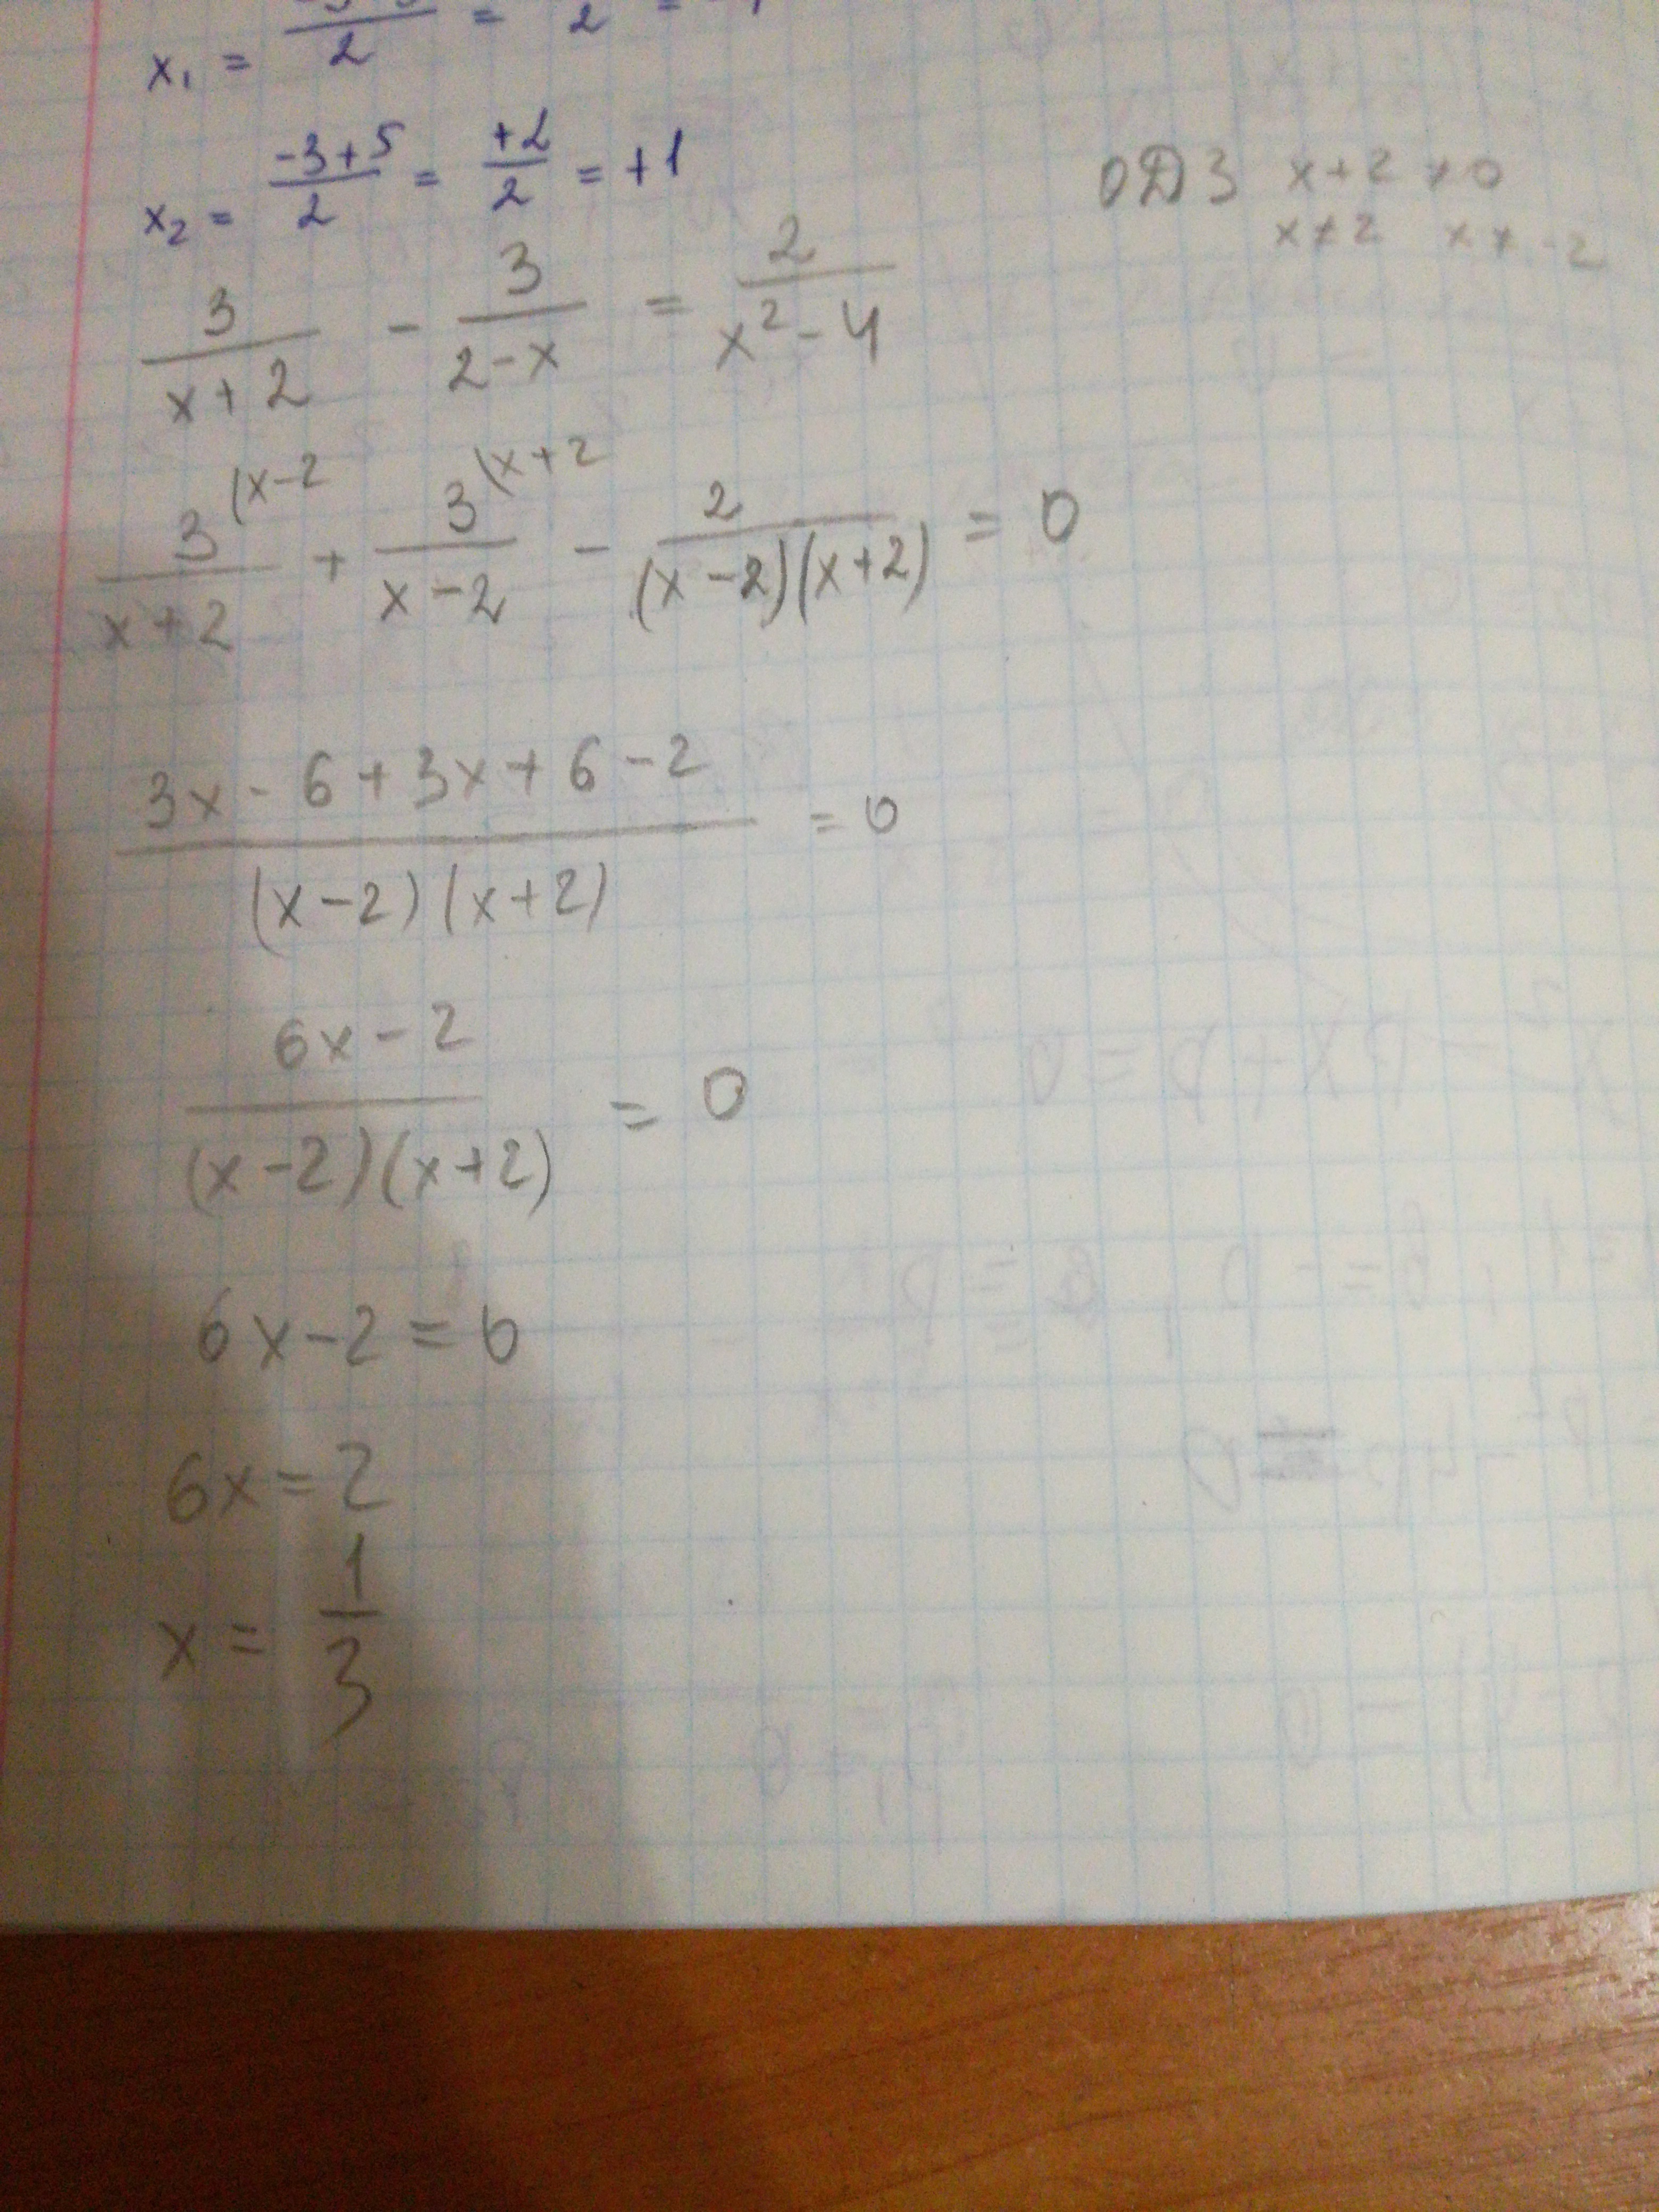 x₁ = ─/2 = ─/2 =
x₂ = (-3+5)/2 = +2/2 = +1
ОДЗ x+2≠0
x≠2 x≠-2
3/(x+2) - 3/(2-x) = 2/(x²-4)
3^(x-2/(x+2) + 3^(x+2/(x-2) - 2/((x-2)(x+2)) = 0
(3x-6+3x+6-2)/((x-2)(x+2)) = 0
(6x-2)/((x-2)(x+2)) = 0
6x-2=0
6x=2
x = 1/3